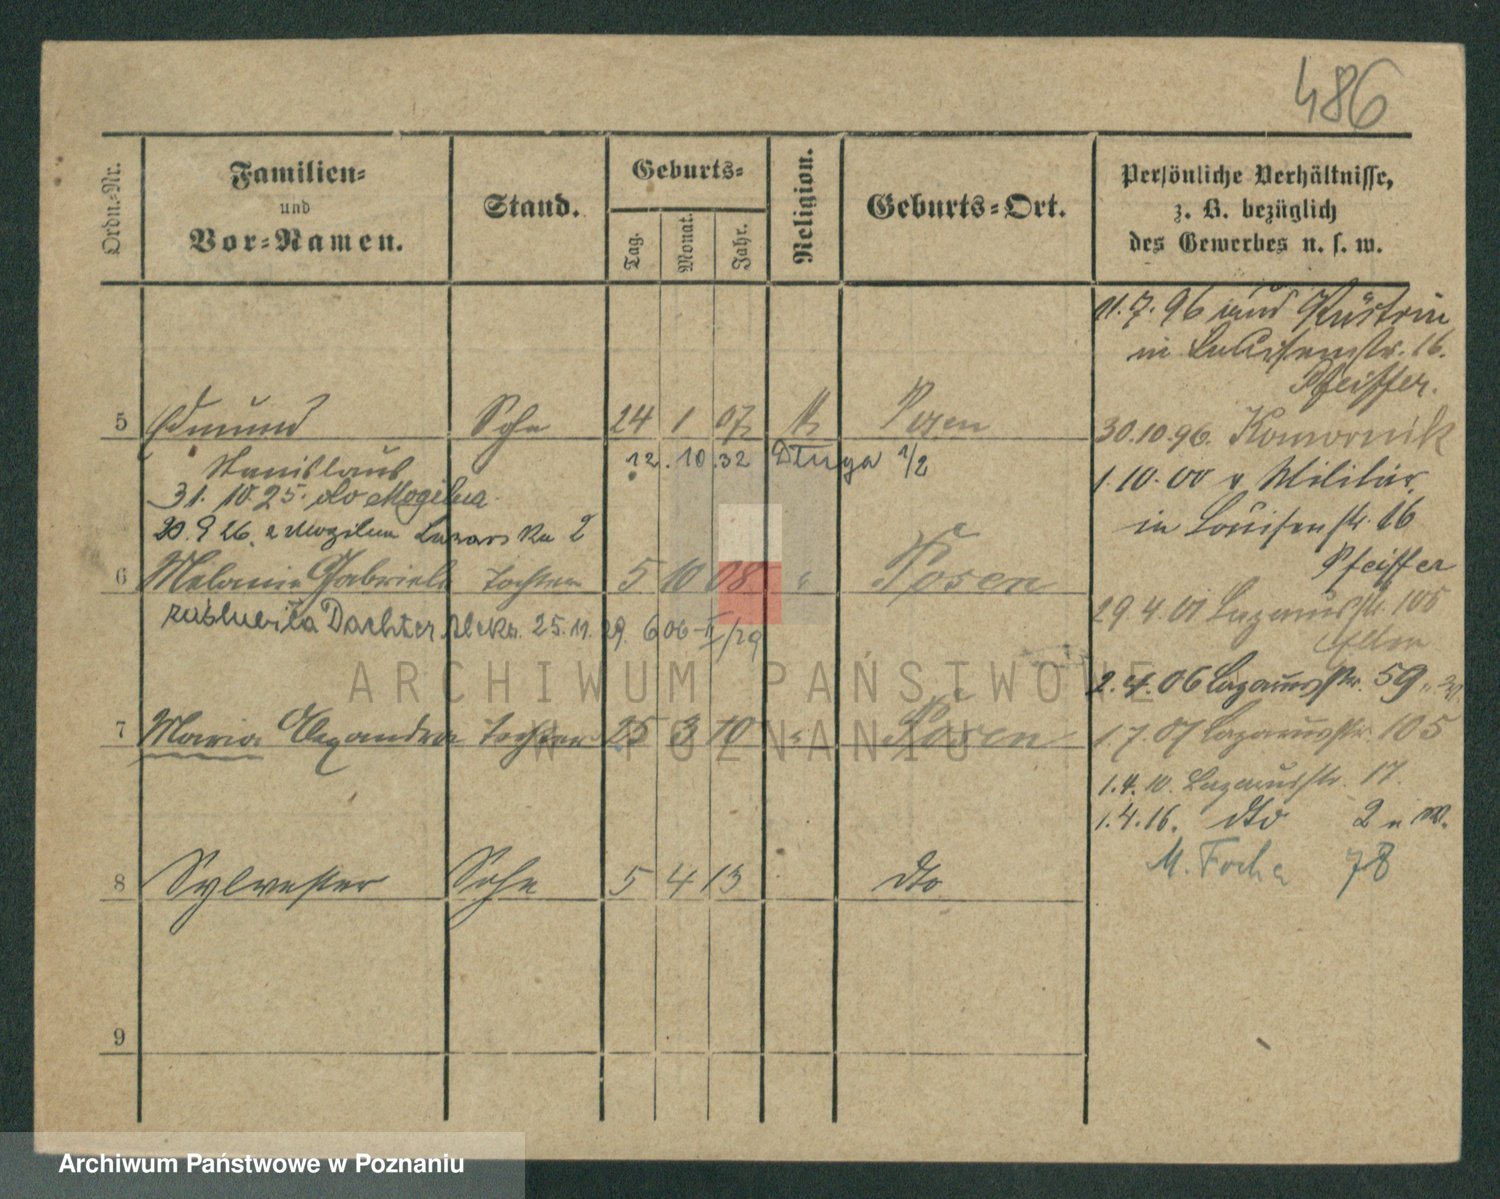 486
Ordn.-Nr.
Familien-
und
Vor-Namen.
Stand.
Geburts-
Tag.
Monat.
Jahr.
Religion.
Geburts-Ort.
Persönliche Verhältnisse,
z. B. bezüglich
des Gewerbes u. s. w.
11.7.96 aus Küstrin
in Louisenstr. 16.
Pfeiffer.
5 Edmund Sohn 24 1 07 k Posen
30.10.96. Komornik
Stanislaus 12.10.32 Długa 1/2
31.10.25. do Mogilna
1.10.00 v Militär
in Louisenstr. 16
20.9.26. z Mogilna Lazarska 2
Pfeiffer
6 Melanie Gabriele Tochter 5 10 08 " Posen
29.4.01 Lazarusstr. 105
zaślubiła Dachtera 25.11.29. 606-II/29
2.4.06 Lazarusstr. 59
7 Maria Alexandra Tochter 25 3 10 " Posen
1.7.07 Lazarusstr. 105
1.4.10. Lazarusstr. 17.
1.4.16. dto 2
M. Focha 78
8 Sylvester Sohn 5 4 13 dto
9
ARCHIWUM PAŃSTWOWE
W POZNANIU
Archiwum Państwowe w Poznaniu